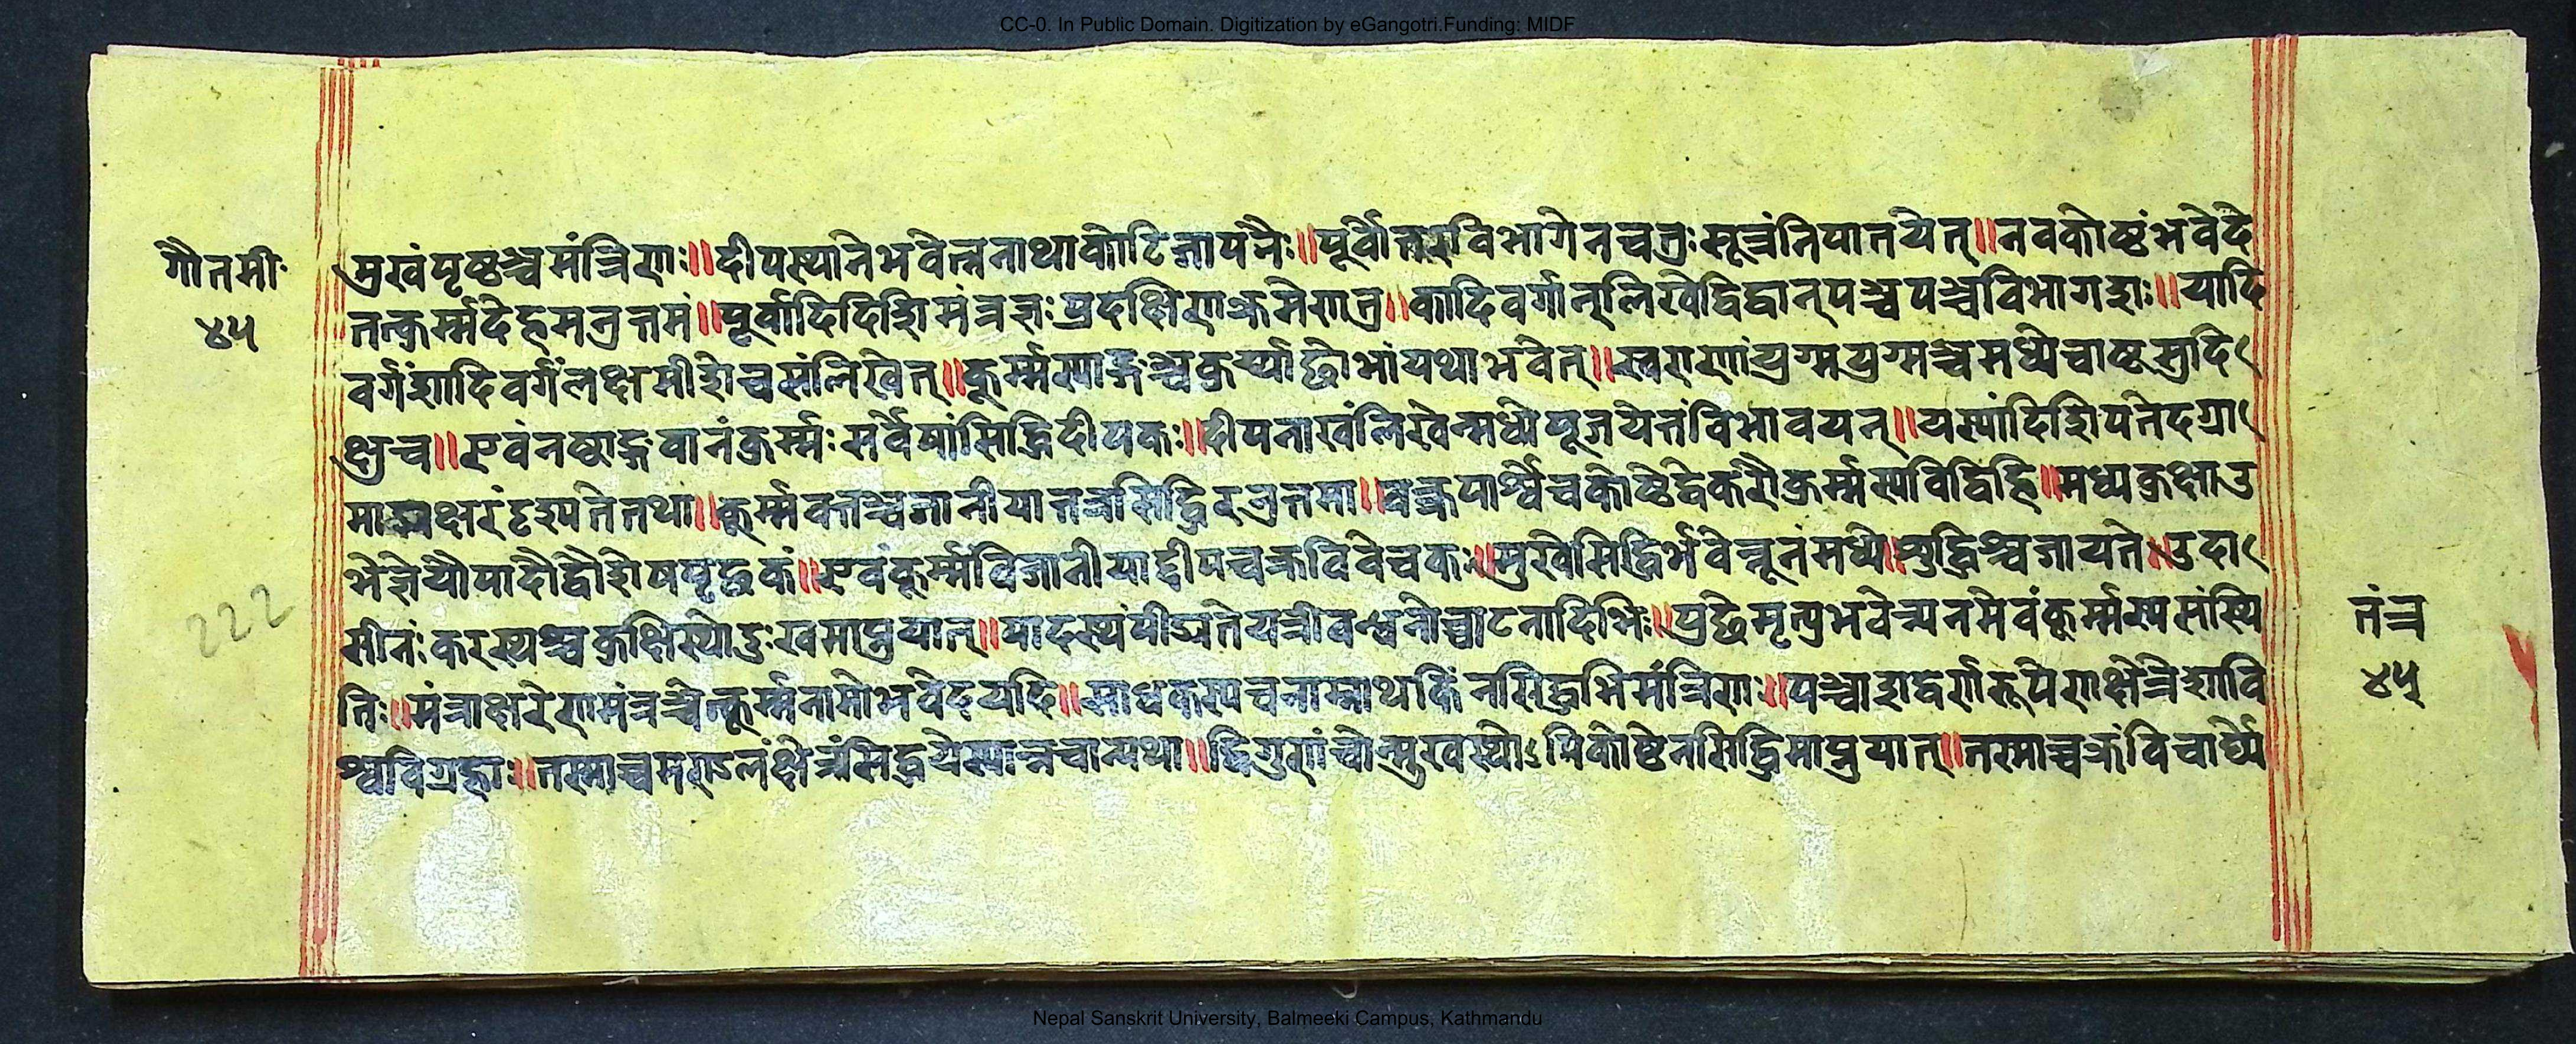 CC-0. In Public Domain. Digitization by eGangotri.Funding: MIDF
गौतमी
४५
मुखं पृष्ठञ्च मंत्रिणः॥ दीपस्थाने भवेत्तन्नाथा कोटिजापनैः॥ पूर्वोत्तरविभागेन चतुःसूत्रं निपातयेत्॥ नवकोष्टं भवेदे
तत्कुर्म्मदेहमनुत्तमं॥ पूर्वादिदिशि मंत्रज्ञः प्रदक्षिणक्रमेण तु॥ कादिवर्गान् लिखेद्विद्वान् पञ्चपञ्चविभागशः॥ यादि
वर्गं शादिवर्गं लक्षमीशे च संलिखेत्॥ कूर्म्मस्याङ्गञ्च कुर्य्याद्वै शोभां यथा भवेत्॥ स्वराणां युग्मयुग्मञ्च मध्ये चाष्टसु दि
क्षु च॥ एवं नष्टाङ्गवानं कुर्म्मः सर्वेषां सिद्धिदीपकः॥ दीपनाखं लिखेन्मध्ये पूजयेत्तं विभावयन्॥ यस्यां दिशि पतेद्ग्रा
माद्यक्षरं दृश्यते तथा॥ कुर्म्मवक्तञ्च जानीयात्तत्र सिद्धिरनुत्तमा॥ वक्त्रपार्श्वे च कोष्ठे द्वे करौ कुर्म्मस्य विद्धि हि॥ मध्यकुक्षा उ
भे ज्ञेयौ पादौ द्वौ शेषपृच्छकं॥ एवं कूर्म्मं विजानीयाद्दीपचक्रविवेचकः॥ मुखे सिद्धिर्भवेन्नूनं मध्ये॥ सुद्धिश्च जायते॥ उदा
सीनः करस्थश्च कुक्षिस्थो दुःखमाप्नुयात्॥ पादस्थं पीड्यते यत्री बन्धनोच्चाटनादिभिः॥ पुच्छे मृत्यु भवेन्यनमेवं कूर्म्मस्य संस्थि
तिः॥ मंत्राक्षरेण मंत्रञ्चेत्कूर्म्मनामो भवेद् यदि॥ साधकस्य च नाम्नाथ किं न सिद्धभि मंत्रिणः॥ पञ्चाशद्वर्णरूपेण क्षेत्रे शावि
श्वविग्रहाः॥ तस्माच्च मण्डलं क्षेत्रं सिद्धये स्यान्नचान्यथा॥ द्विगुणं चोन्मुखस्थोऽपि कोष्टेन सिद्धिमाप्नुयात्॥ तस्माच्चक्रं विचार्य्यै
222
तंत्र
४५
Nepal Sanskrit University, Balmeeki Campus, Kathmandu